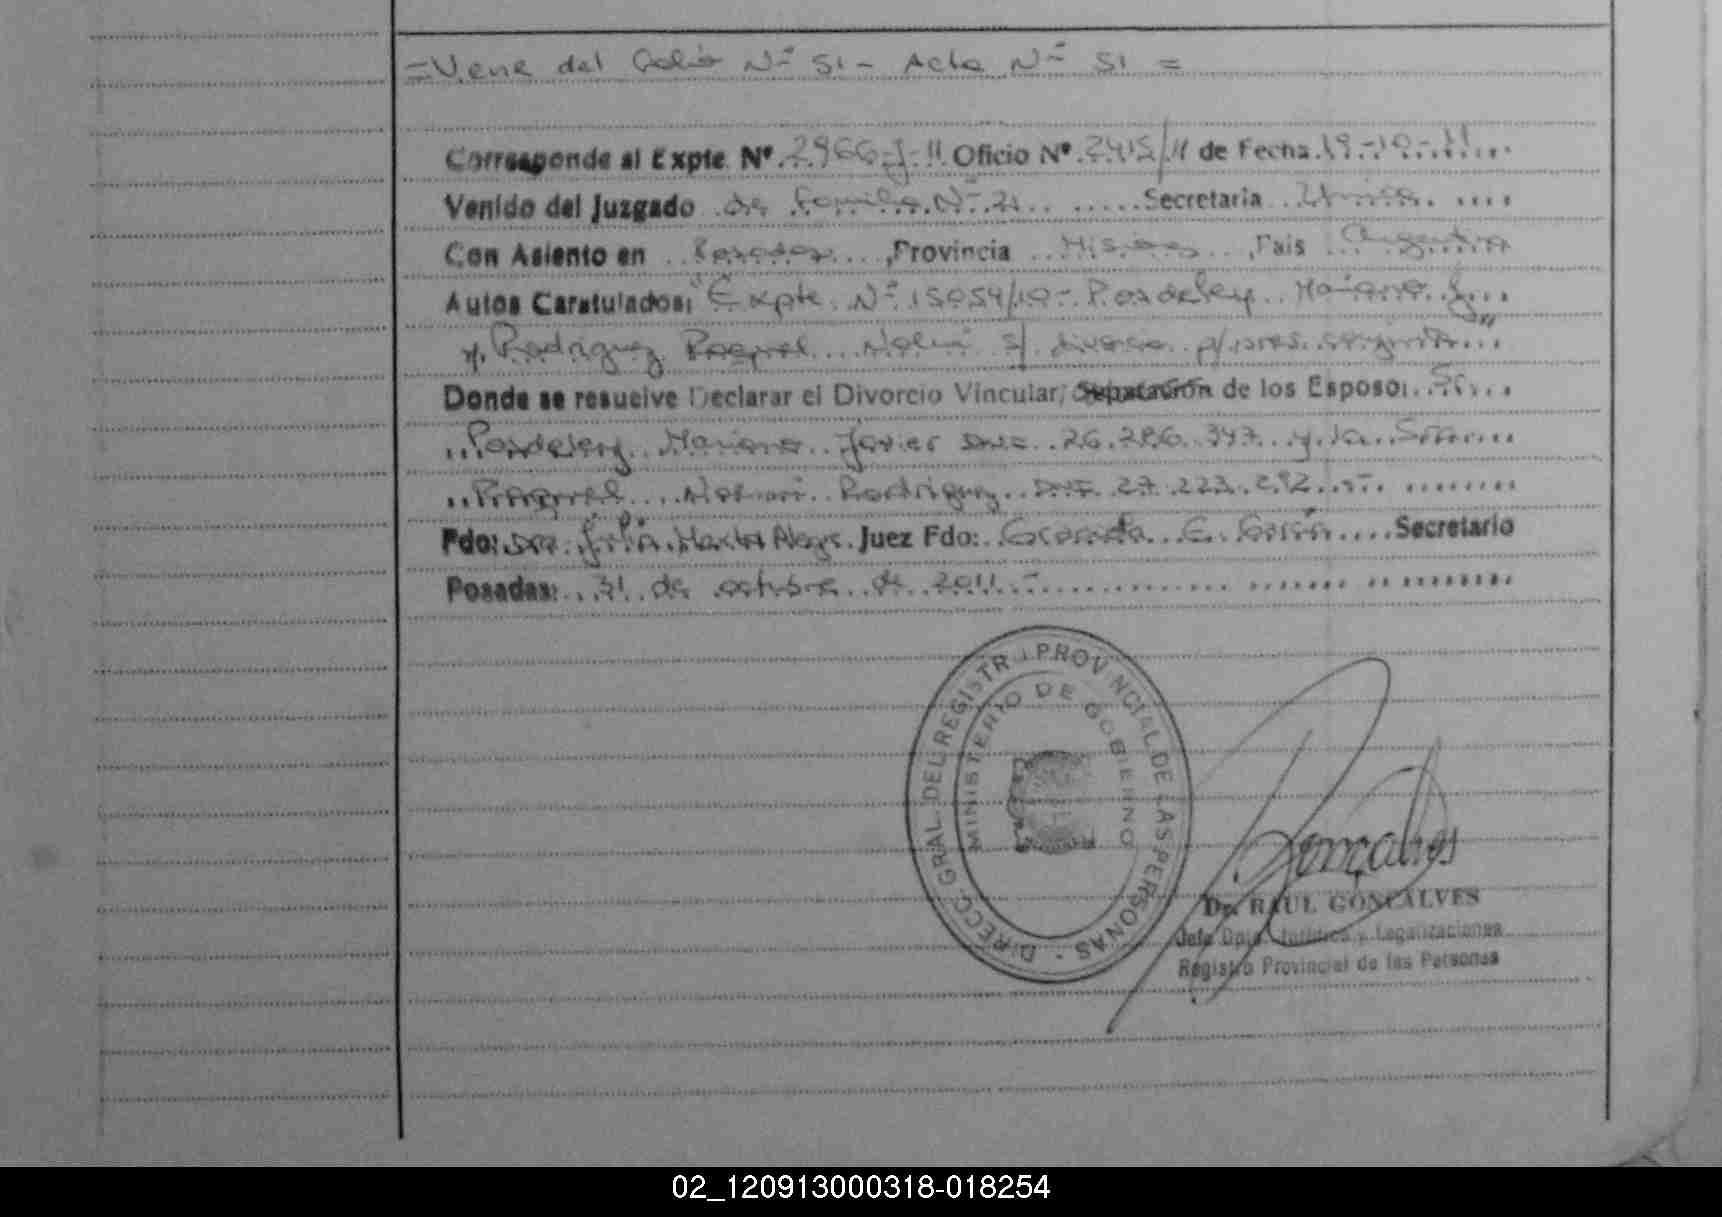 =Viene del Folio Nº 51 - Acta Nº 51 =
Corresponde al Expte. Nº 2966-J-11 Oficio Nº 2415/11 de Fecha 19-10-11
Venido del Juzgado de Familia Nº 2 Secretaria Unica
Con Asiento en Posadas, Provincia Misiones, Pais Argentina
Autos Caratulados: "Expte. Nº 15054/10- Mariano J.
y Rodriguez Raquel Noemi s/ divorcio p/ pres. conjunta"
Donde se resuelve Declarar el Divorcio Vincular, Separación de los Esposos: Sr.
Mariano Javier DNI 26.286.347 y la Sra.
Raquel Noemi Rodriguez DNI 27.223.292.-
Fdo: Dra. Juez Fdo: E. Secretario
Posadas: 31 de octubre de 2011.-
DIRECC. GRAL. DEL REGISTRO PROVINCIAL DE LAS PERSONAS -
MINISTERIO DE GOBIERNO
Gonçalves
Dr. RAUL GONÇALVES
Jefe Dpto. Jurídico y Legalizaciones
Registro Provincial de las Personas
02_120913000318-018254